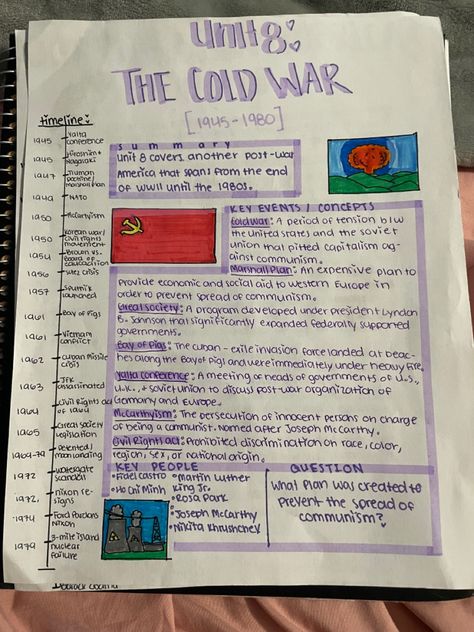 Unit 8:
THE COLD WAR
[1945-1980]
timeline:
1945 Yalta conference
1945 Hiroshima + Nagasaki
1947 Truman doctrine/ marshall plan
NATO
1950 McCarthyism
1950 Korean war/ civil rights movement
1954 Brown vs. Board of education
1956 Suez crisis
1957 Sputnik launched
1961 Bay of Pigs
1961 Vietnam conflict
1962 Cuban missile crisis
1963 JFK assassinated
1964 Civil Rights Act
1965 Great society legislation
moon landing
1972 Watergate scandal
Nixon resigns
1974 Ford pardons Nixon
1979 3-mile island nuclear failure
summary
Unit 8 covers another post-war
America that spans from the end
of WWII until the 1980s.
KEY EVENTS / CONCEPTS
Cold War: A period of tension b/w
the United States and the Soviet
union that pitted capitalism ag-
ainst communism.
Marshall Plan: An expensive plan to
provide economic and social aid to western Europe in
order to prevent spread of communism.
Great society: A program developed under president Lyndon
B. Johnson that significantly expanded federally supported
governments.
Bay of Pigs: The cuban-exile invasion force landed at beac-
hes along the Bay of Pigs and were immediately under heavy fire.
Yalta conference: A meeting of heads of governments of U.S.,
U.K., + Soviet union to discuss post-war organization of
Germany and Europe.
McCarthyism: The persecution of innocent persons on charge
of being a communist. Named after Joseph McCarthy.
Civil Rights Act: Prohibited discrimination on race, color,
region, sex, or national origin.
KEY PEOPLE
• Fidel Castro
• Ho Chi Minh
• Martin Luther
King Jr.
• Rosa Park
• Joseph McCarthy
• Nikita Khrushchev
QUESTION
What plan was created to
prevent the spread of
communism?